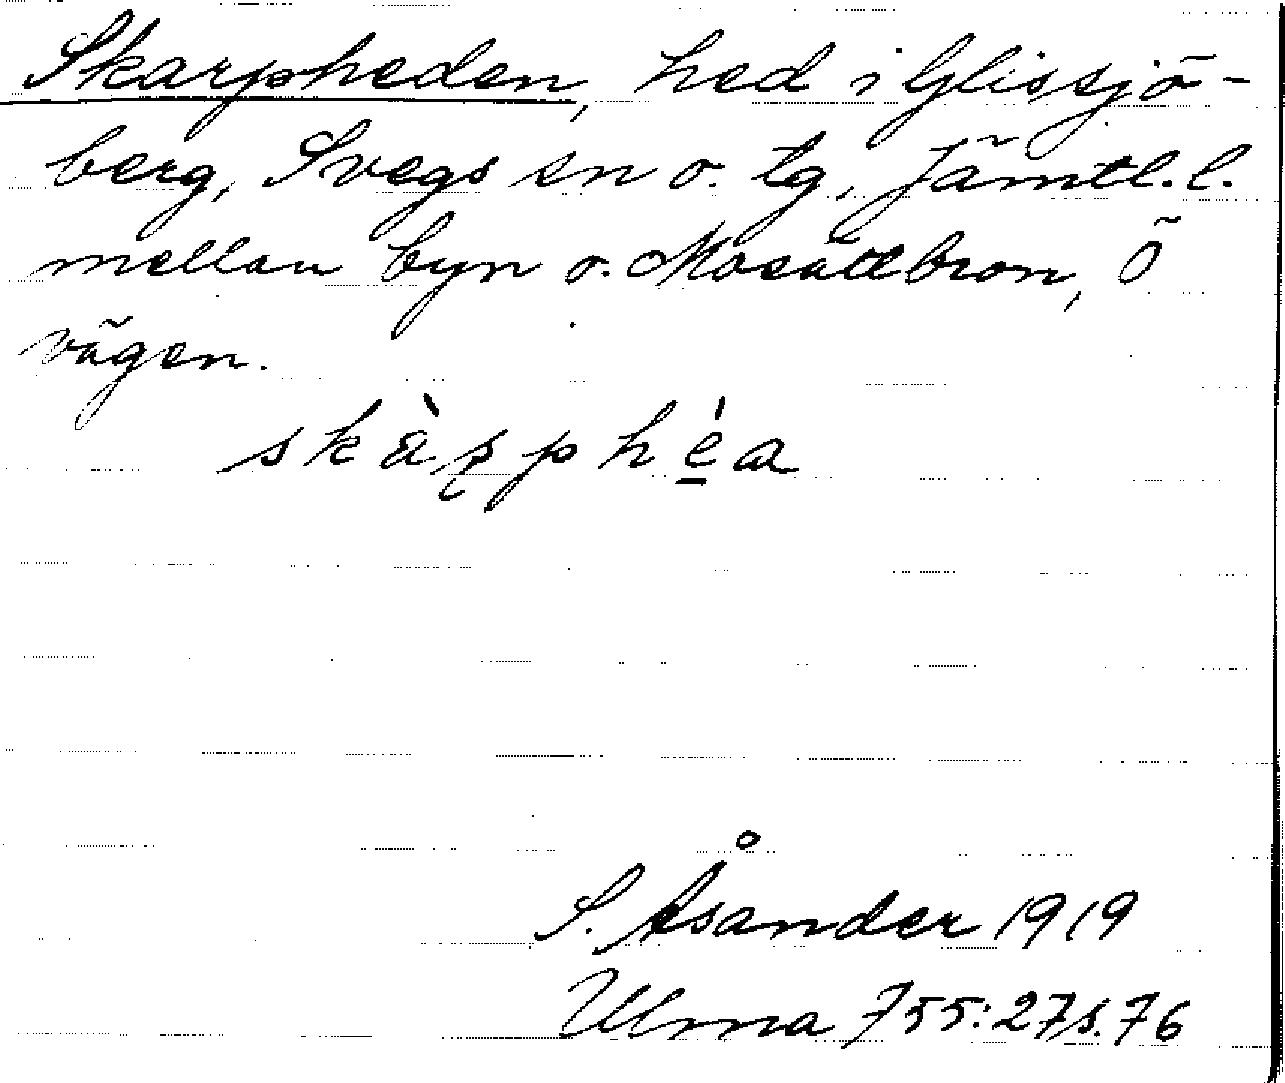 Skarpheden, hed i Glissjö-
berg, Svegs sn o. tg, Jämtl. l.
mellan byn o. Mosätlbron, Ö
vägen.
skàp̨phé̲a
S. Åsander 1919
Ulma 755:27 s. 76